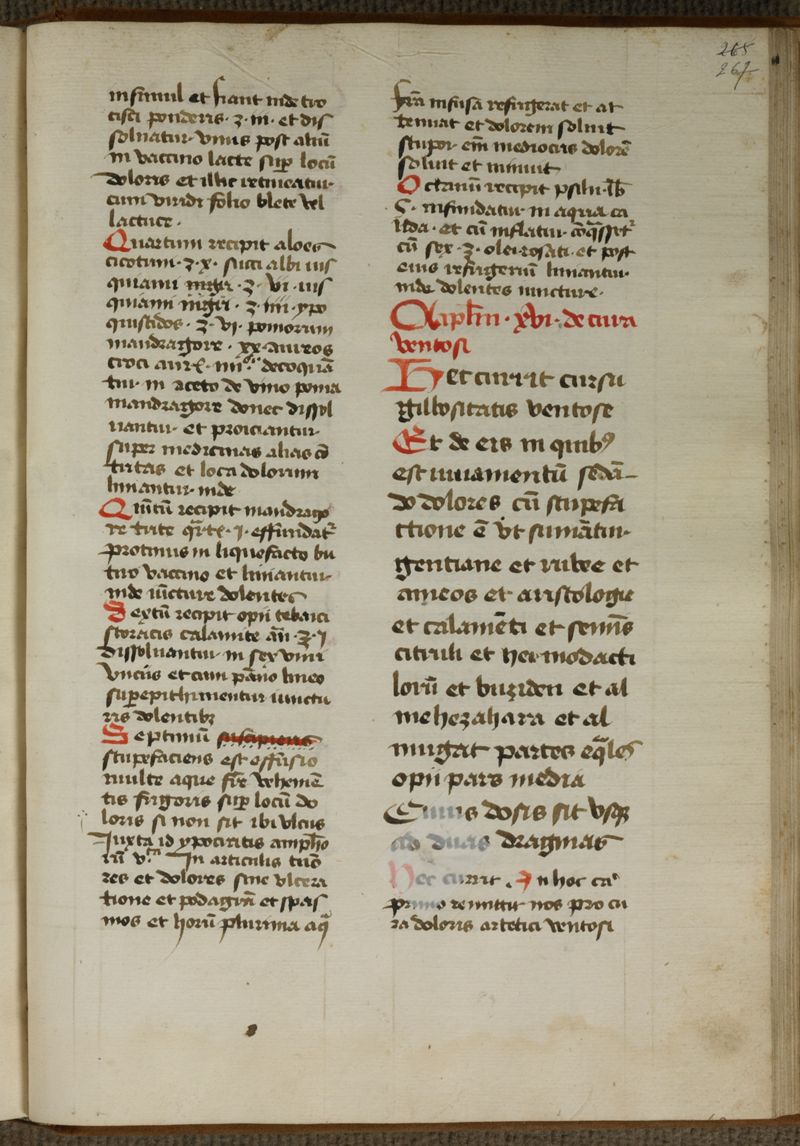 265
267
insimul et fiant inde tro
cisci ponderis · ʒ · m · et dis
soluatur · vnus post aliū
in vaccino lacte suꝑ locū
doloris et illic retineatur
cum viridi folio blete vel
lactuce ·
Quartum recipit aloes
cicotrini · ʒ · x · succi albi ius
quiami nigri · ʒ · vi · ius
quiami nigri · ʒ · iiii · ypo
quistidos · ʒ · vi · pomorum
mandragore · xx · aureos
croci aur
tur in aceto de vino poma
mandragore donec dissol
uantur et proiciantur
super medicinas alias
tritas et loca dolorum
liniantur inde
Quintū recipit mandrago
re trite effundat̄
protinus in liquefacto bu
tiro vaccino et liniantur
inde iūcture dolentes
Sextū recipit opii tebaici
storacis calamite an̄ · ʒ · j
dissoluantur in sex vini
vncijs et cum pāno lineo
suꝑepithimentur iunctu
ris dolentibꝫ
Septimū
stupefaciens est effusio
multe aque fr̄e vehemē
tis frigoris suꝑ locū do
loris si non sit ibi vlcus
Juxta id ypocratis
In articulis tumo
res et dolores sine vlcera
tione et podagrā et spas
mos et horū plurima aq̄
fr̄a infusa refrigerat et at
tenuat et dolorem soluit
stupor em̄ mediocris dolorē
soluit et minuit
Octauū recipit psilii
infundatur in aqua ca
lida · et cū inflatur
cū sex · ʒ · olei rosati · et post
eius refrigeriū liniantur
inde dolentes iuncture ·
Caplm̄ · xvi · de cura
ventosi
Hec currit cursu
gillositatis ventose
Et de eis in quibꝰ
est iuuamentū sedā
do dolores cū stupefa
ctione ē vt sumātur
gentiane et rubee et
ameos et aristologie
et calamēti et semīs
citruli et hermodacti
lorū et buziden et al
mehezahara et al
mugat partes eq̄les
opii pars media
Cuius dosis sit vsqꝫ
ad duas dragmas
Hec currit · In hoc ca
primo remittit nos pro cu
ra doloris artetici ventosi